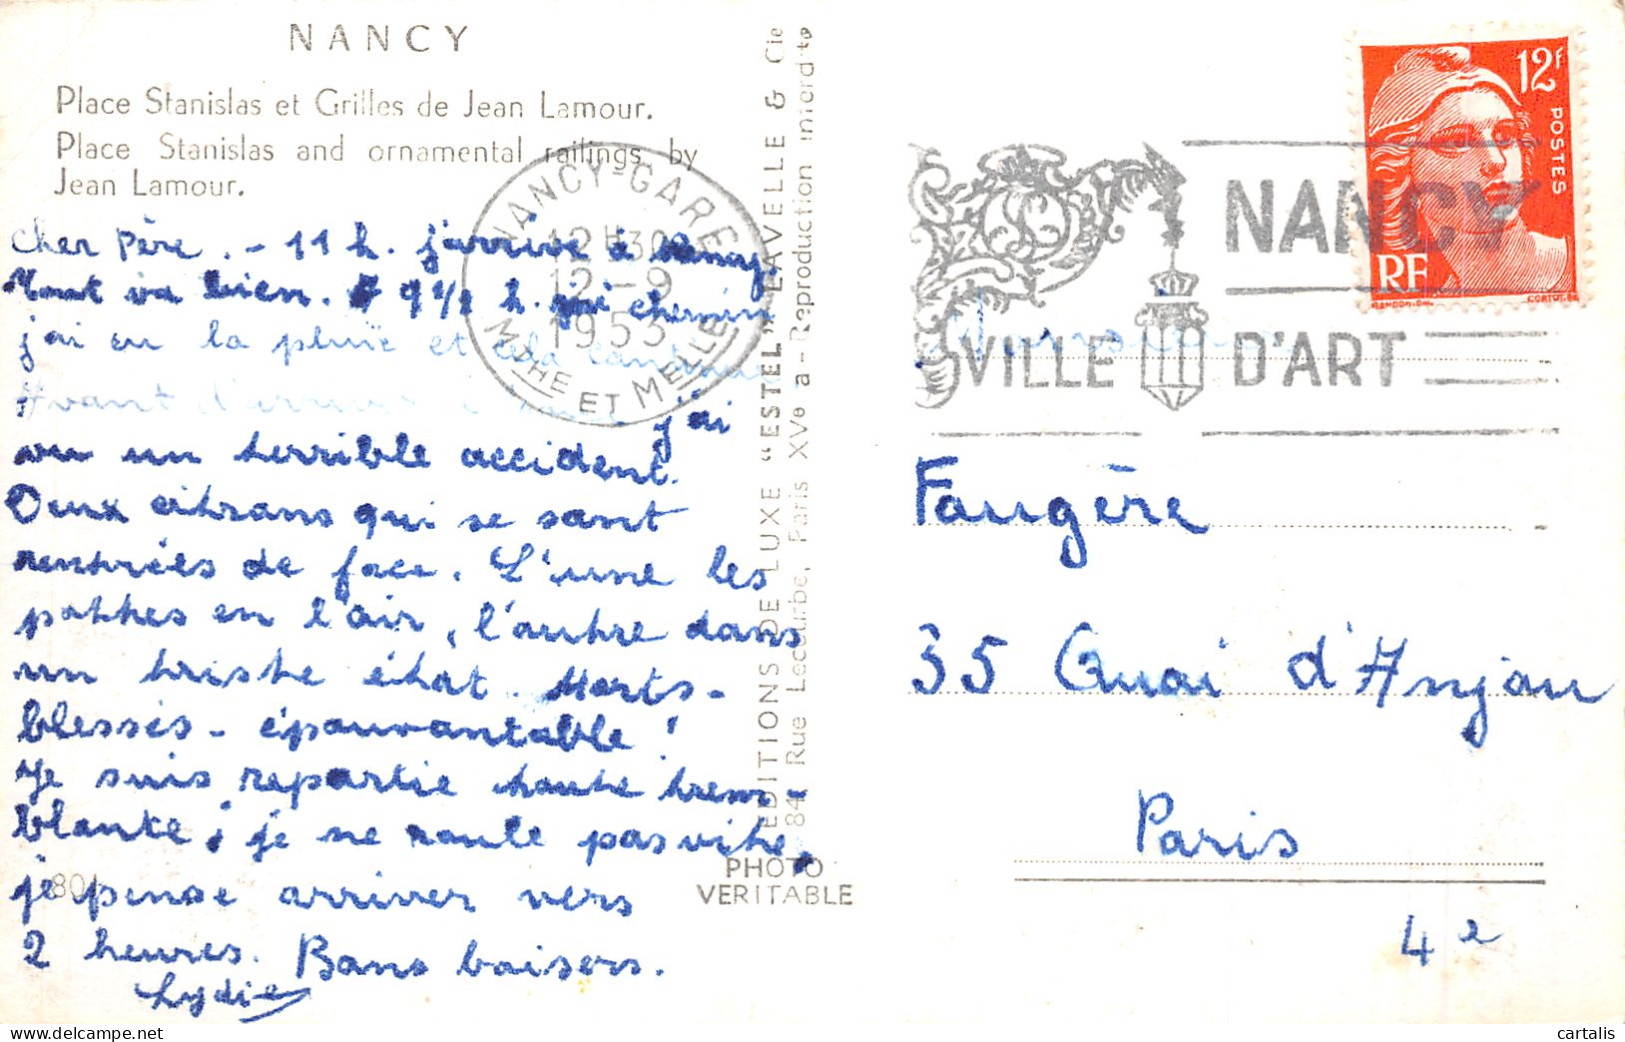 NANCY
Place Stanislas et Grilles de Jean Lamour.
Place Stanislas and ornamental railings by
Jean Lamour.
Cher Père. - 11 h. j'arrive à Nancy.
tout va bien. 9 1/2 h. j'ai chemin
j'ai eu la pluie et cela continue
Avant d'arriver à j'ai
vu un terrible accident.
Deux citrons qui se sont
rentrées de face. L'une les
pattes en l'air, l'autre dans
un triste état. Morts-
blessés - épouvantable !
Je suis repartie toute trem-
blante, je ne roule pas vite,
je pense arriver vers
2 heures. Bons baisers.
Lydie
80
EDITIONS DE LUXE "ESTEL" LAVELLE & Cie
84, Rue Lecourbe, Paris XVe - Reproduction interdite
PHOTO
VERITABLE
NANCY-GARE
12H30
12-9
1953
MTHE ET MELLE
NANCY
VILLE D'ART
12F
POSTES
RF
GANDON
CORTOT
Monsieur
Faugère
35 Quai d'Anjou
Paris
4e
cartalis